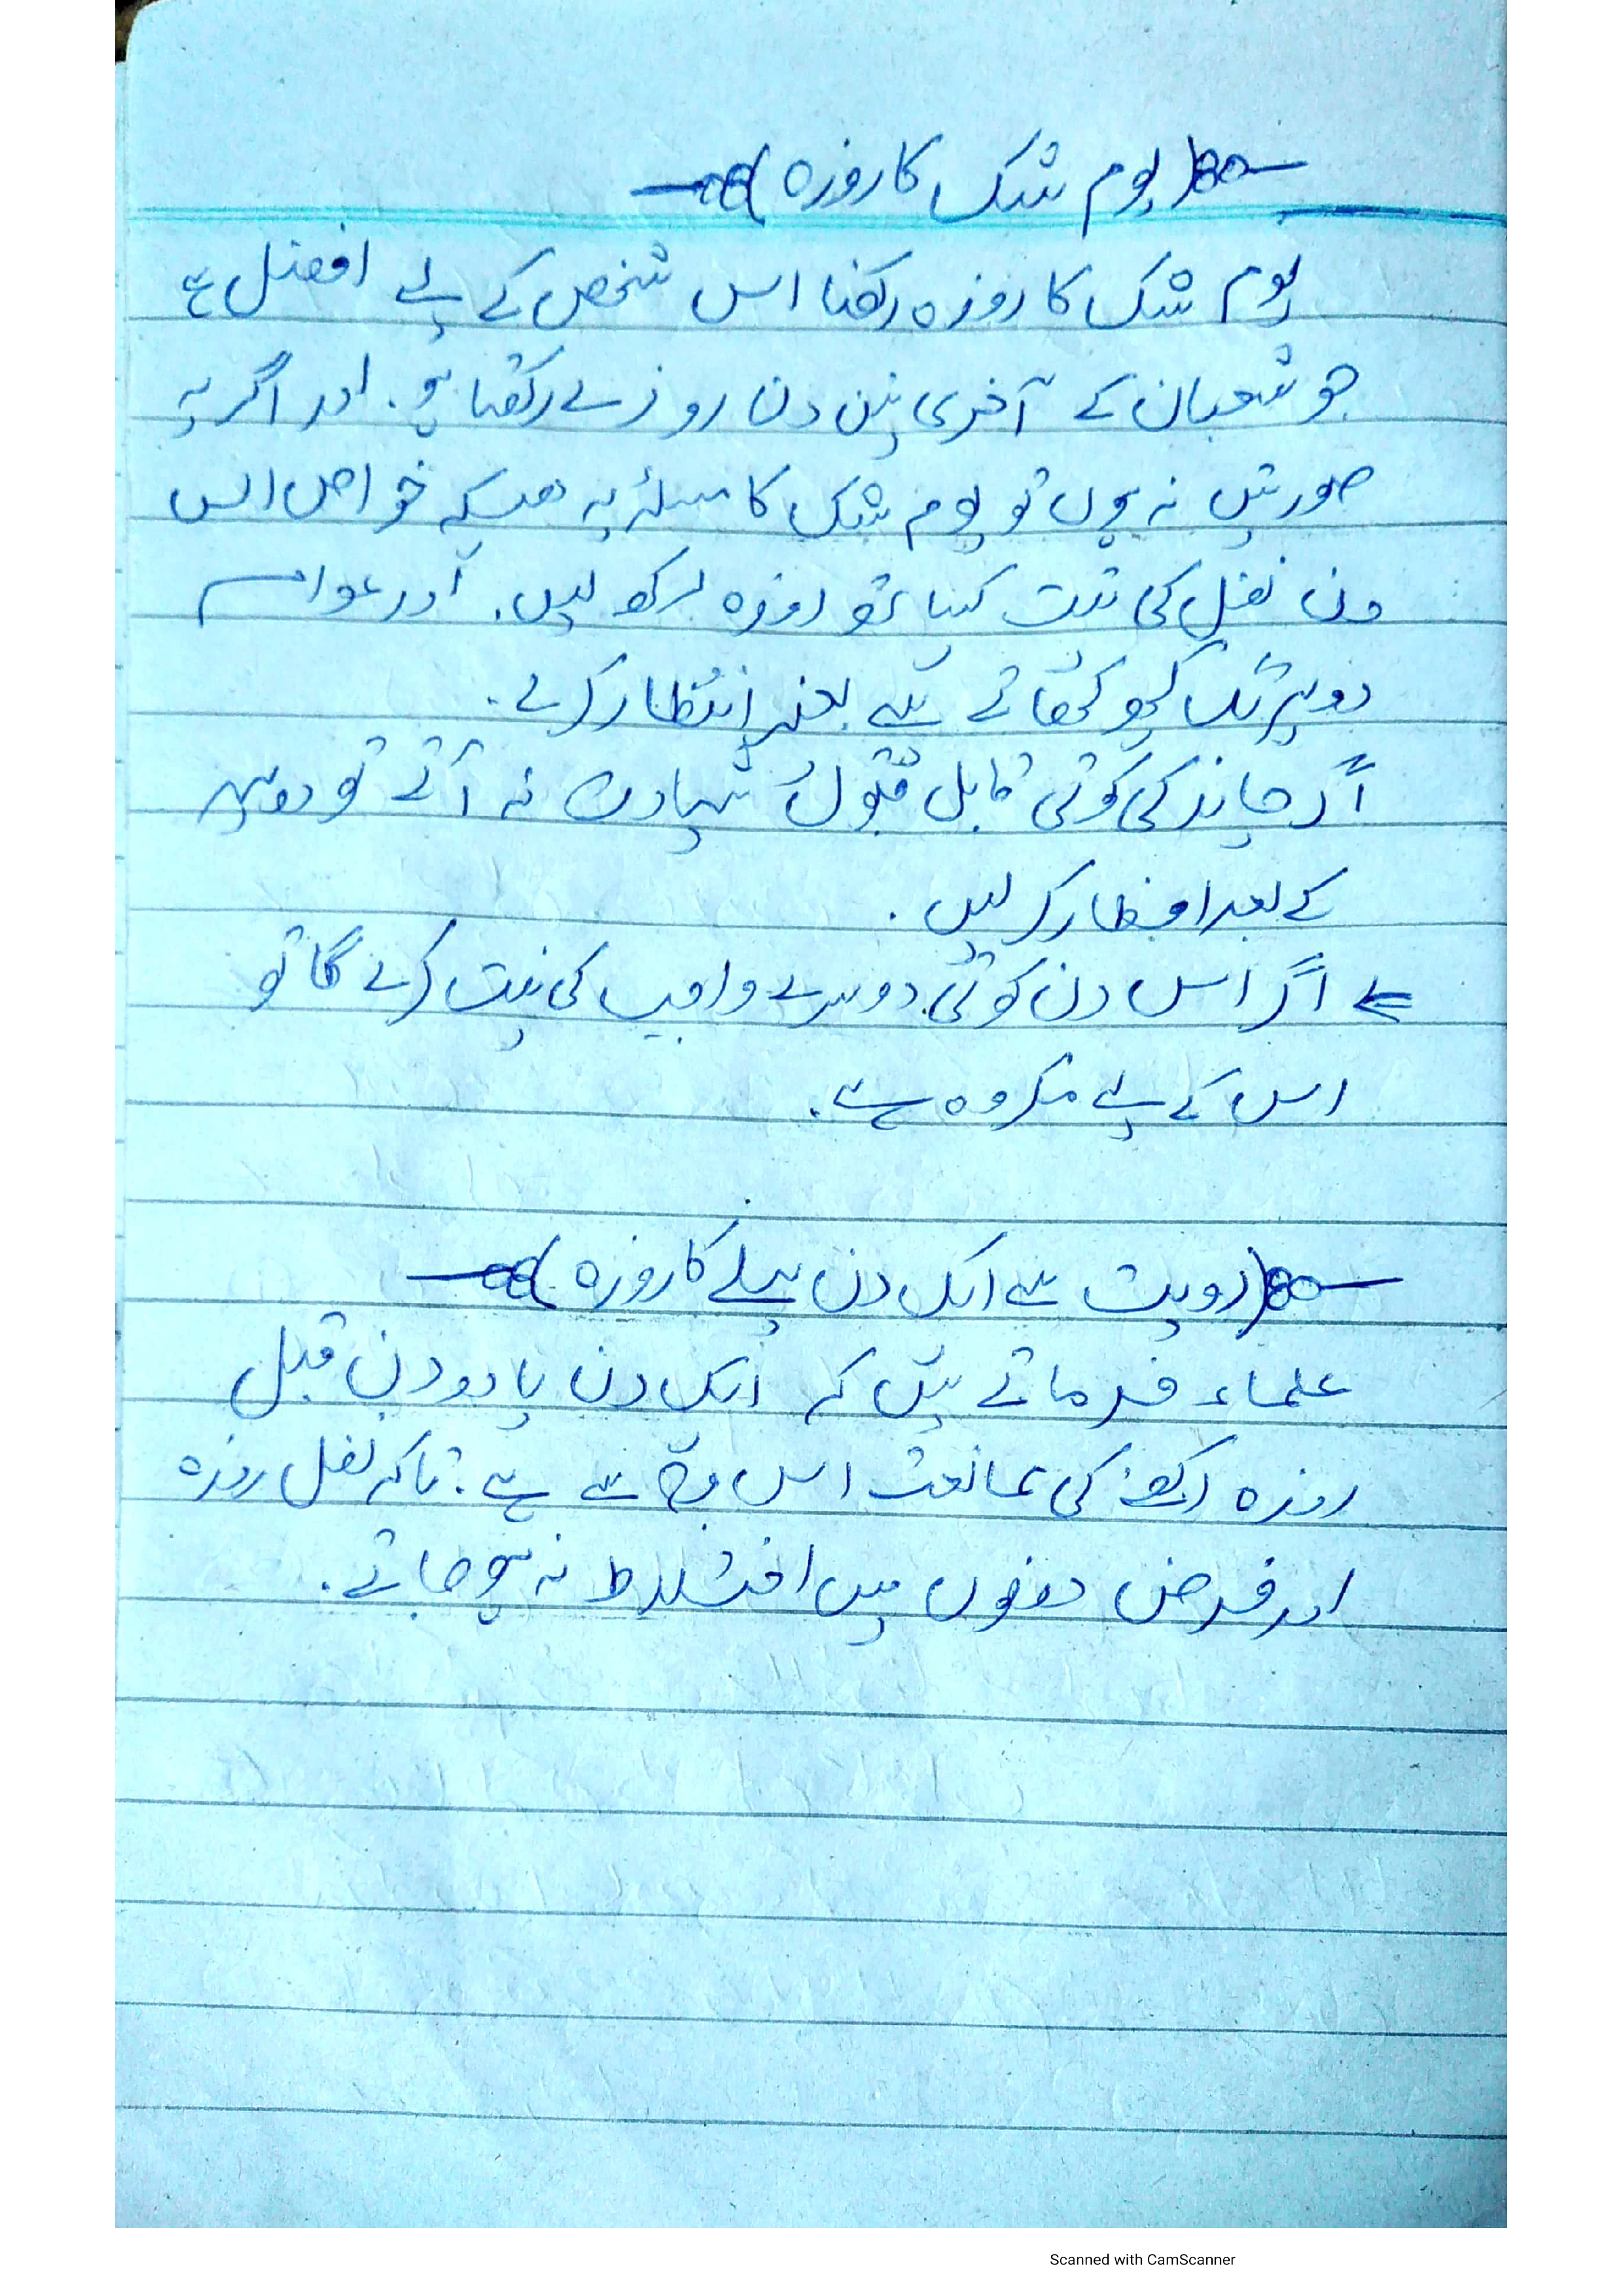 (یوم شک کا روزہ)
یوم شک کا روزہ رکھنا اس شخص کے لیے افضل ہے
جو شعبان کے آخری تین دن روزے رکھتا ہو۔ اور اگر یہ
صورتیں نہ ہوں تو یوم شک کا مسئلہ یہ ھیکہ خواص اس
دن نفل کی نیت کیساتھ روزہ رکھ لیں۔ اور عوام
دوپہر تک کچھ کھائے پیے بغیر انتظار کرے۔
اگر چاند کی کوئی قابل قبول شہادت نہ آئے تو دوپہر
کے بعد افطار کر لیں۔
⇐ اگر اس دن کوئی دوسرے واجب کی نیت کرے گا تو
اس کے لیے مکروہ ہے۔
(رویت سے ایک دن پہلے کا روزہ)
علماء فرماتے ہیں کہ ایک دن یا دو دن قبل
روزہ رکھنے کی ممانعت اس وجہ سے ہے۔ تاکہ نفل روزہ
اور فرض دونوں میں اختلاط نہ ہو جائے۔
Scanned with CamScanner